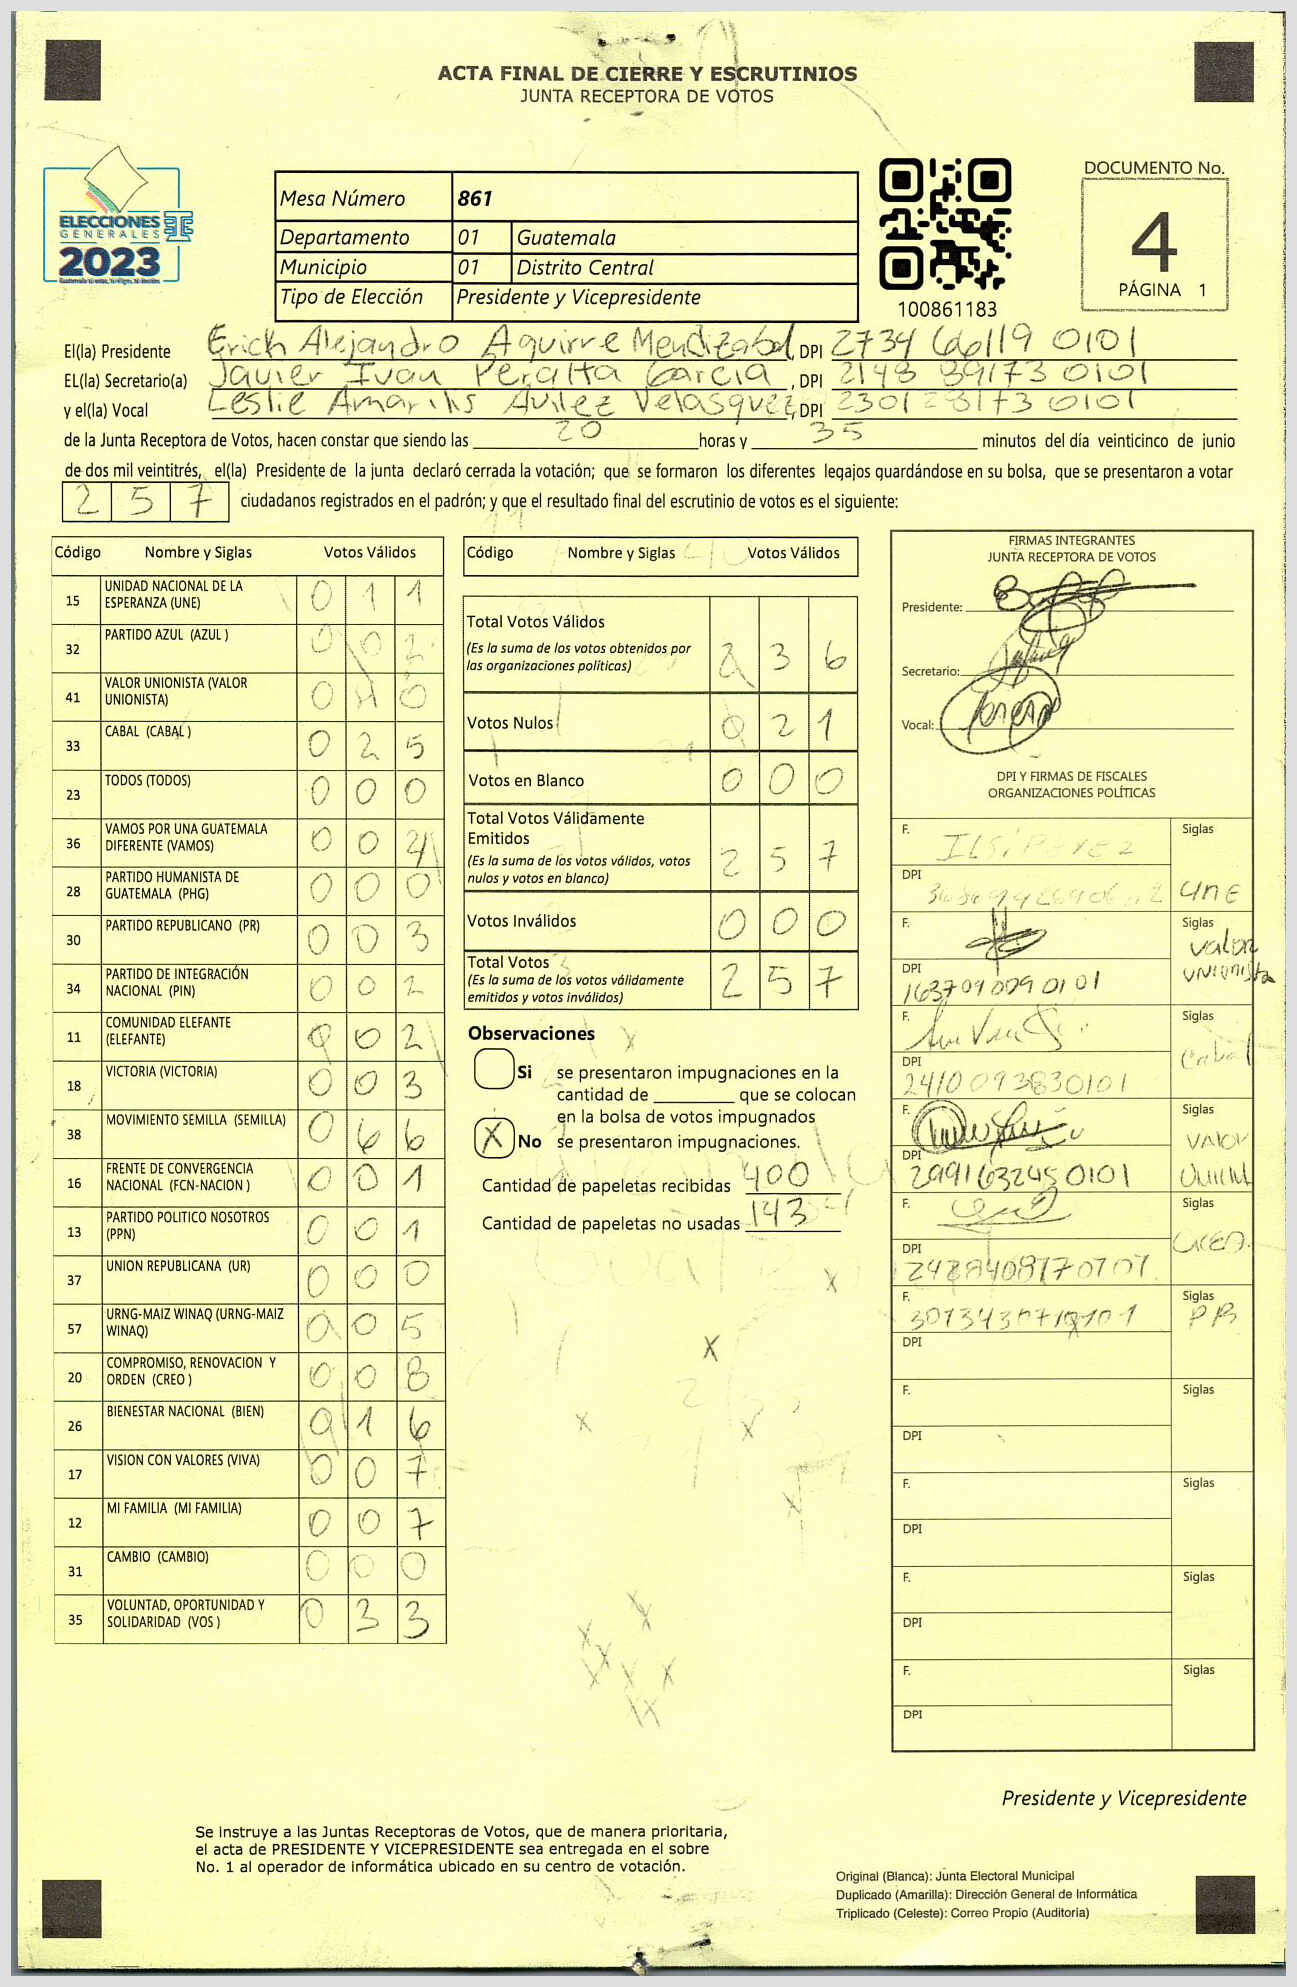 ACTA FINAL DE CIERRE Y ESCRUTINIOS
JUNTA RECEPTORA DE VOTOS
ELECCIONES
GENERALES
2023
Mesa Número 861
Departamento 01 Guatemala
Municipio 01 Distrito Central
Tipo de Elección Presidente y Vicepresidente
100861183
DOCUMENTO No.
4
PÁGINA 1
El(la) Presidente Erich Alejandro Aguirre Mendizabal, DPI 2734 66119 0101
EL(la) Secretario(a) Javier Ivan Peralta Garcia, DPI 2148 89173 0101
y el(la) Vocal Leslie Amarilis Avilez Velasquez, DPI 2301 28173 0101
de la Junta Receptora de Votos, hacen constar que siendo las 20 horas y 35 minutos del día veinticinco de junio
de dos mil veintitrés, el(la) Presidente de la junta declaró cerrada la votación; que se formaron los diferentes legajos guardándose en su bolsa, que se presentaron a votar
2 5 7 ciudadanos registrados en el padrón; y que el resultado final del escrutinio de votos es el siguiente:
Código Nombre y Siglas Votos Válidos
15 UNIDAD NACIONAL DE LA ESPERANZA (UNE) 0 1 1
32 PARTIDO AZUL (AZUL ) 0 0 2
41 VALOR UNIONISTA (VALOR UNIONISTA) 0
33 CABAL (CABAL ) 0 2 5
23 TODOS (TODOS) 0 0 0
36 VAMOS POR UNA GUATEMALA DIFERENTE (VAMOS) 0 0
28 PARTIDO HUMANISTA DE GUATEMALA (PHG) 0 0 0
30 PARTIDO REPUBLICANO (PR) 0 0 3
34 PARTIDO DE INTEGRACIÓN NACIONAL (PIN) 0 0 2
11 COMUNIDAD ELEFANTE (ELEFANTE) 0 0 2
18 VICTORIA (VICTORIA) 0 0 3
38 MOVIMIENTO SEMILLA (SEMILLA) 0 6 6
16 FRENTE DE CONVERGENCIA NACIONAL (FCN-NACION ) 0 0 1
13 PARTIDO POLITICO NOSOTROS (PPN) 0 0 1
37 UNION REPUBLICANA (UR) 0 0 0
57 URNG-MAIZ WINAQ (URNG-MAIZ WINAQ) 0 0 5
20 COMPROMISO, RENOVACION Y ORDEN (CREO ) 0 0 8
26 BIENESTAR NACIONAL (BIEN) 0 1 6
17 VISION CON VALORES (VIVA) 0 0 7
12 MI FAMILIA (MI FAMILIA) 0 0 7
31 CAMBIO (CAMBIO) 0 0 0
35 VOLUNTAD, OPORTUNIDAD Y SOLIDARIDAD (VOS ) 0 3 3
Código Nombre y Siglas Votos Válidos
Total Votos Válidos
(Es la suma de los votos obtenidos por
las organizaciones politicas) 2 3 6
Votos Nulos 0 2 1
Votos en Blanco 0 0 0
Total Votos Válidamente
Emitidos
(Es la suma de los votos válidos, votos
nulos y votos en blanco) 2 5 7
Votos Inválidos 0 0 0
Total Votos
(Es la suma de los votos válidamente
emitidos y votos inválidos) 2 5 7
Observaciones
Si se presentaron impugnaciones en la
cantidad de ________ que se colocan
en la bolsa de votos impugnados
X No se presentaron impugnaciones.
Cantidad de papeletas recibidas 400
Cantidad de papeletas no usadas 143
FIRMAS INTEGRANTES
JUNTA RECEPTORA DE VOTOS
Presidente:
Secretario:
Vocal:
DPI Y FIRMAS DE FISCALES
ORGANIZACIONES POLÍTICAS
F. Ilsi Perez Siglas
DPI UNE
F. Siglas Valor
DPI 163709009 0101 Unionista
F. Siglas
DPI 2410093830101 Cabal
F. Siglas Valor
DPI 299163245 0101
F. Siglas
DPI
F. Siglas
DPI
F. Siglas
DPI
F. Siglas
DPI
F. Siglas
DPI
F. Siglas
DPI
Presidente y Vicepresidente
Se instruye a las Juntas Receptoras de Votos, que de manera prioritaria,
el acta de PRESIDENTE Y VICEPRESIDENTE sea entregada en el sobre
No. 1 al operador de informática ubicado en su centro de votación.
Original (Blanca): Junta Electoral Municipal
Duplicado (Amarilla): Dirección General de Informática
Triplicado (Celeste): Correo Propio (Auditoría)